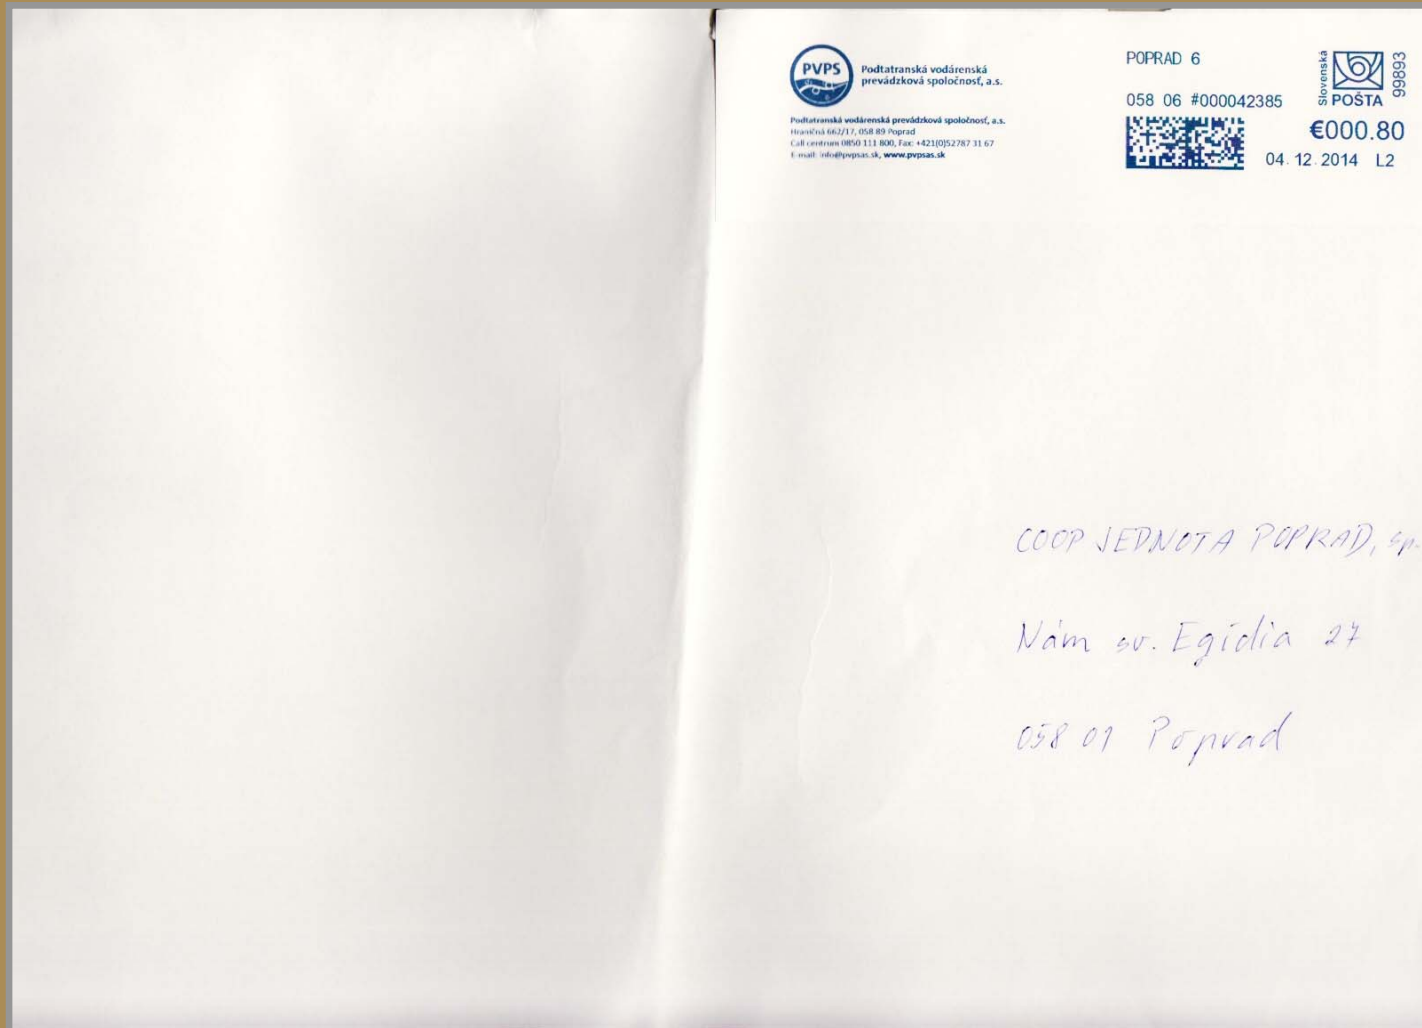 PVPS
Podtatranská vodárenská
prevádzková spoločnosť, a.s.
Podtatranská vodárenská prevádzková spoločnosť, a.s.
Hraničná 662/17, 058 89 Poprad
Call centrum 0850 111 800, Fax: +421(0)52787 31 67
E-mail: info@pvpsas.sk, www.pvpsas.sk
POPRAD 6
058 06 #000042385
Slovenská
POŠTA
99893
€000.80
04.12.2014 L2
COOP JEDNOTA POPRAD, sp.
Nám sv. Egídia 27
058 01 Poprad